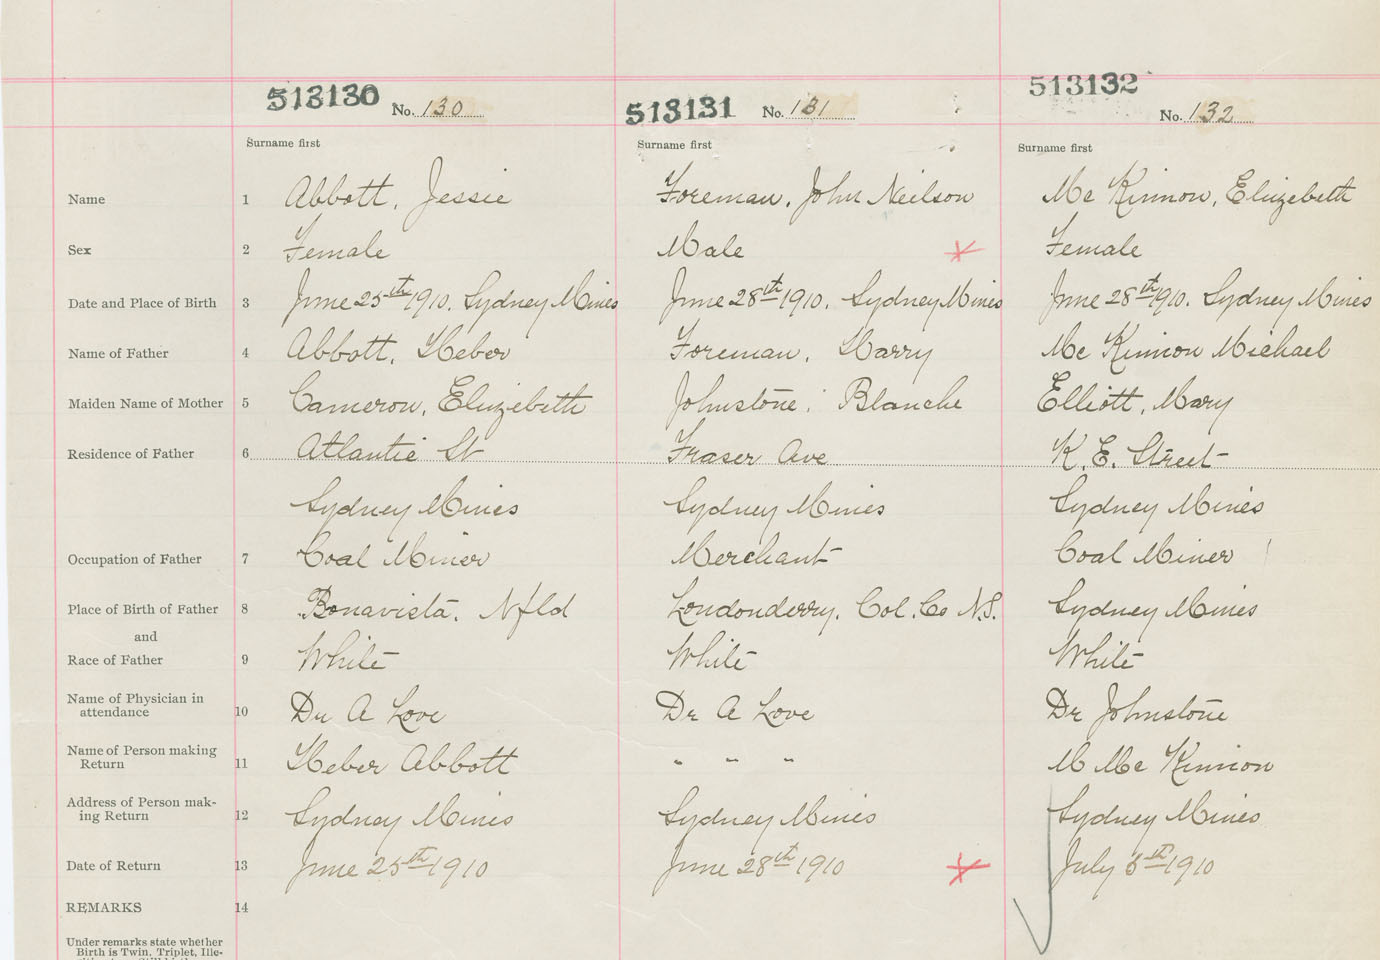 513130 No. 130 513131 No. 131 513132 No. 132
Surname first Surname first Surname first
Name 1 Abbott, Jessie Foreman, John Neilson Mc Kinnon, Elizebeth
Sex 2 Female Male Female
Date and Place of Birth 3 June 25th 1910. Sydney Mines June 28th 1910. Sydney Mines June 28th 1910. Sydney Mines
Name of Father 4 Abbott, Heber Foreman, Harry Mc Kinnon Michael
Maiden Name of Mother 5 Cameron, Elizebeth Johnstone, Blanche Elliott, Mary
Residence of Father 6 Atlantic St Fraser Ave K. E. Street
Sydney Mines Sydney Mines Sydney Mines
Occupation of Father 7 Coal Miner Merchant Coal Miner
Place of Birth of Father 8 Bonavista, Nfld Londonderry, Col. Co N.S. Sydney Mines
and
Race of Father 9 White White White
Name of Physician in
attendance 10 Dr A Love Dr A Love Dr Johnstone
Name of Person making
Return 11 Heber Abbott " " " M Mc Kinnon
Address of Person mak-
ing Return 12 Sydney Mines Sydney Mines Sydney Mines
Date of Return 13 June 25th 1910 June 28th 1910 July 5th 1910
REMARKS 14
Under remarks state whether
Birth is Twin, Triplet, Ille-